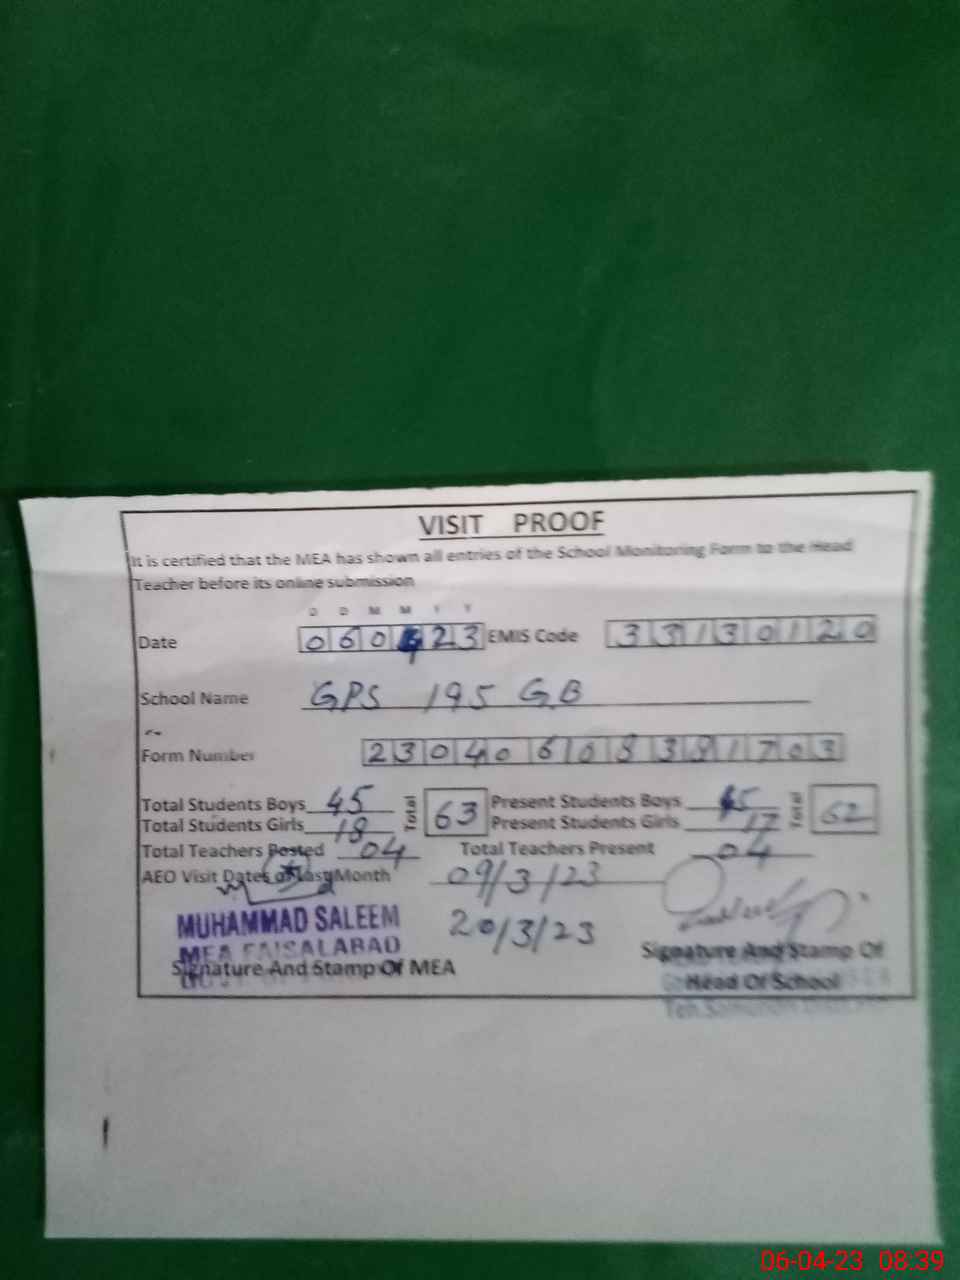 VISIT PROOF
It is certified that the MEA has shown all entries of the School Monitoring Form to the Head
Teacher before its online submission
D D M M Y Y
Date 060423 EMIS Code 33130120
School Name GPS 195 GB
Form Number 23040608381703
Total Students Boys 45 Total 63 Present Students Boys 45 Total 62
Total Students Girls 18 Present Students Girls 17
Total Teachers Posted 04 Total Teachers Present 04
AEO Visit Dates of Last Month 09/3/23
20/3/23
MUHAMMAD SALEEM
MEA FAISALABAD
Signature And Stamp Of MEA
Signature And Stamp Of
Head Of School
06-04-23 08:39